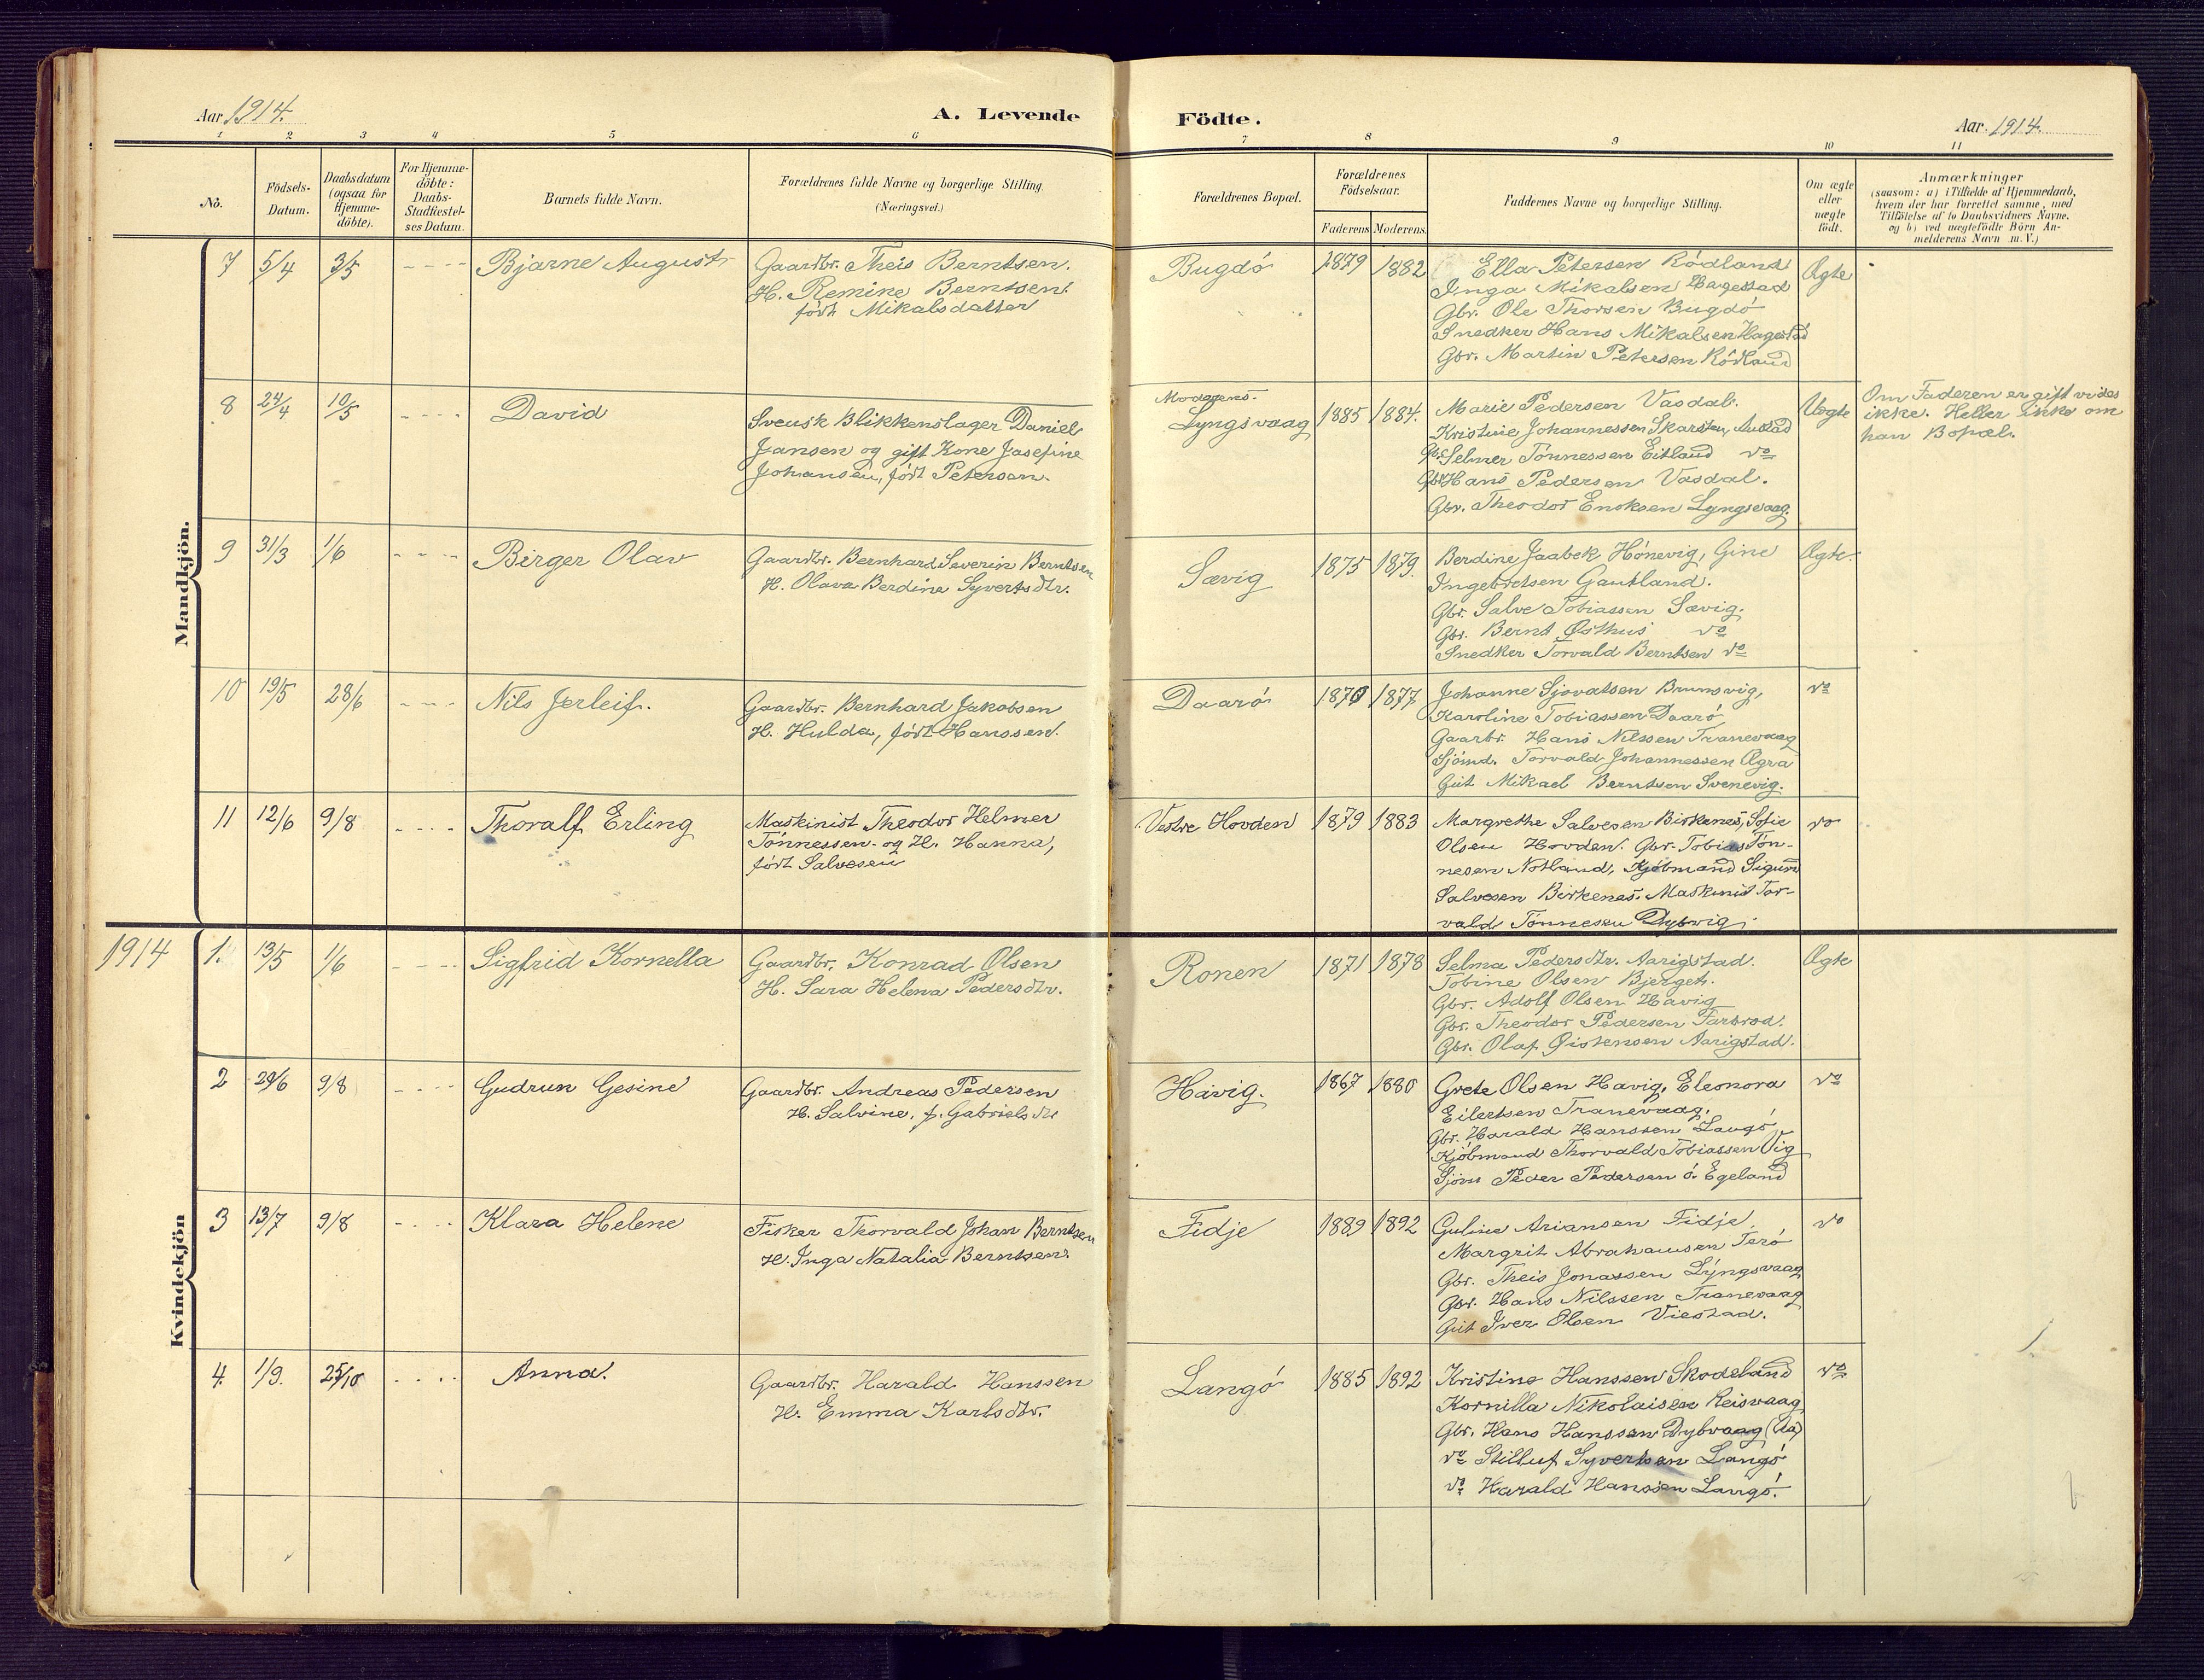 Aar 1914.
A. Levende
Födte.
Aar. 1914.
1 2 3 4 5 6 7 8 9 10 11
No.
Födsels-
Datum.
Daabsdatum
(ogsaa for
Hjemme-
döbte).
For Hjemme-
döbte:
Daabs-
Stadfæstel-
ses Datum.
Barnets fulde Navn.
Forældrenes fulde Navne og borgerlige Stilling.
(Næringsvei.)
Forældrenes Bopæl.
Forældrenes
Födselsaar.
Faderens Moderens.
Faddernes Navne og borgerlige Stilling.
Om ægte
eller
uægte
födt.
Anmærkninger
(saasom: a) i Tilfælde af Hjemmedaab,
hvem der har forrettet samme, med
Tilföielse af to Daabsvidners Navne.
og b) ved uægtefödte Börn An-
melderens Navn m. V.)
Mandkjön.
7 5/4 3/5 - - - - Bjarne August
Gaardbr. Theis Berntsen.
H. Remine Berntsen.
födt Mikalsdatter
Bugdó 1879 1882
Ella Petersen Ródland
Inga Mikalsen Hagestad
Gbr. Ole Thorsen Bugdó
Snedker Hans Mikalsen Hagestad
Gbr. Martin Petersen Ródland
Ægte
8 24/4 10/5 - - - - David
Svensk Blikkenslager Daniel
Jansen og gift Kone Josefine
Johansen, födt Petersen.
Moderens.
Lyngsvaag 1885 1884.
Marie Pedersen Vasdal.
Kristine Johannessen Skarstein, Austad
Gbr. Selmer Tönnessen Eitland do
Gbr. Hans Pedersen Vasdal.
Gbr. Theodor Enoksen Lyngsvaag.
Uægte
Om Faderen er gift vides
ikke. Heller ikke om
han Bopæl.
9 31/3 1/6 - - - - Birger Olav
Gaardbr. Bernhard Severin Berntsen
H. Olava Berdine Syvertsdtr.
Sævig 1875 1879.
Berdine Jaabek Hónevig, Gine
Ingebretsen Gautland.
Gbr. Salve Tobiassen Sævig.
Gbr. Bernt Østhus do
Snedker Torvald Berntsen do
Ægte.
10 19/5 28/6 - - - Nils Jerleif.
Gaardbr. Bernhard Jakobsen
H. Hulda, födt Hanssen.
Daaró 1870 1877
Johanne Sjovatsen Brunsvig,
Karoline Tobiassen Daaró
Gaarbr. Hans Nilssen Tranevaag
Sjómd. Torvald Johannessen Ægra
Gut Mikael Berntsen Svenevig.
do
11 12/6 9/8 - - - - Thoralf Erling
Maskinist Theodor Helmer
Tönnessen og H. Hanna,
födt Salvesen
Vestre Hovden 1879 1883
Margrethe Salvesen Birkenes, Sofie
Olsen Hovden. Gbr. Tobias Tön-
nesen Notland, Kjöbmand Sigurd
Salvesen Birkenes. Maskinist Tor-
vald Tönnesen Dybvig.
do
Kvindekjön
1914 1. 13/5 1/6 - - - - Sigfrid Kornella
Gaardbr. Konrad Olsen
H. Sara Helena Pedersdtr.
Ronen 1871 1878
Selma Pedersdtr. Aarigstad.
Tobine Olsen Bjerget.
Gbr. Adolf Olsen Havig
Gbr. Theodor Pedersen Farbrod.
Gbr. Olaf Øistensen Aarigstad.
Ægte
2 29/6 9/8 - - - - Gudrun Gesine
Gaardbr. Andreas Pedersen
H. Salvine, f. Gabrielsdtr
Hávig. 1867 1880
Grete Olsen Havig, Eleonora
Eilertsen Tranevaag.
Gbr. Harald Hanssen Langó,
Kjöbmand Thorvald Tobiassen Vig
Sjóm Peder Pedersen ó. Egeland
do
3 13/7 9/8 - - - - Klara Helene
Fisker Thorvald Johan Berntsen
H. Inga Natalia Berntsen.
Fidje 1889 1892
Guline Ariansen Fidje
Margrit Abrahamsen Teró
Gbr. Theis Jonassen Lyngsvaag
Gbr. Hans Nilssen Tranevaag
Gut Iver Olsen Viestad.
do
4. 1/9. 25/10 - - - - Anna.
Gaardbr. Harald Hanssen
H. Emma Karlsdtr.
Langó 1885 1892
Kristine Hanssen Skodeland
Kornilla Nikolaisen Reisvaag
Gbr. Hans Hanssen Dybvaag (Aa)
do Stilluf Syvertsen Langó
do Harald Hanssen Langó.
do